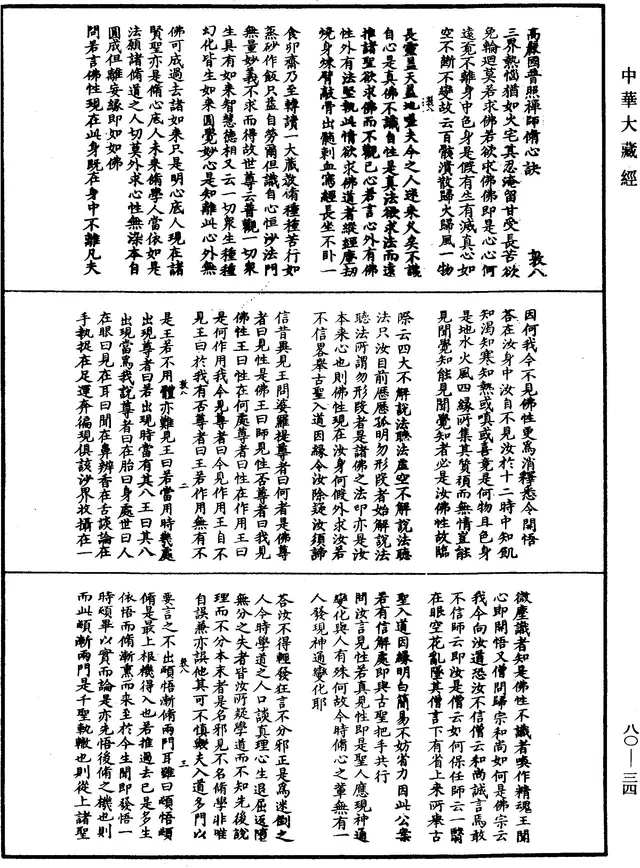 中華大藏經
高麗國普照禪師脩心訣　敦八
三界熱惱猶如火宅其忍淹留甘受長苦欲
免輪迴莫若求佛若欲求佛佛即是心心何
遠覓不離身中色身是假有生有滅真心如
空不斷不變故云百骸潰散歸火歸風一物
長靈蓋天蓋地嗟夫今之人迷來久矣不識
自心是真佛不識自性是真法欲求法而遠
推諸聖欲求佛而不觀己心若言心外有佛
性外有法堅執此情欲求佛道者縱經塵劫
燒身煉臂敲骨出髓刺血寫經長坐不卧一
食卯齋乃至轉讀一大藏教脩種種苦行如
蒸砂作飯只益自勞爾但識自心恒沙法門
無量妙義不求而得故世尊云普觀一切衆
生具有如來智慧德相又云一切衆生種種
幻化皆生如來圓覺妙心是知離此心外無
佛可成過去諸如來只是明心底人現在諸
賢聖亦是脩心底人未來脩學人當依如是
法願諸脩道之人切莫外求心性無染本自
圓成但離妄緣即如如佛
問若言佛性現在此身既在身中不離凡夫
因何我今不見佛性更為消釋悉令開悟
荅在汝身中汝自不見汝於十二時中知飢
知渴知寒知熱或嗔或喜竟是何物且色身
是地水火風四緣所集其質頑而無情豈能
見聞覺知能見聞覺知者必是汝佛性故臨
際云四大不解說法聽法虛空不解說法聽
法只汝目前歷歷孤明勿形段者始解說法
聽法所謂勿形段者是諸佛之法印亦是汝
本來心也則佛性現在汝身何假外求汝若
不信畧舉古聖入道因緣令汝除疑汝須諦
信昔異見王問婆羅提尊者曰何者是佛尊
者曰見性是佛王曰師見性否尊者曰我見
佛性王曰性在何處尊者曰性在作用王曰
是何作用我今不見尊者曰今見作用王自不
見王曰於我有否尊者曰王若作用無有不
是王若不用體亦難見王曰若當用時幾處
出現尊者曰若出現時當有其八王曰其八
出現當為我說尊者曰在胎曰身處世曰人
在眼曰見在耳曰聞在鼻辨香在舌談論在
手執捉在足運奔徧現俱該沙界收攝在一
微塵識者知是佛性不識者喚作精魂王聞
心即開悟又僧問歸宗和尚如何是佛宗云
我今向汝道恐汝不信僧云和尚誠言焉敢
不信師云即汝是僧云如何保任師云一翳
在眼空花亂墜其僧言下有省上來所舉古
聖入道因緣明白簡易不妨省力因此公案
若有信解處即與古聖把手共行
問汝言見性若真見性即是聖人應現神通
變化與人有殊何故今時脩心之輩無有一
人發現神通變化耶
荅汝不得輕發狂言不分邪正是為迷倒之
人今時學道之人口談真理心生退屈返墮
無分之失者皆汝所疑學道而不知先後說
理而不分本末者是名邪見不名脩學非唯
自誤兼亦誤他其可不慎歟夫入道多門以
要言之不出頓悟漸脩兩門耳雖曰頓悟頓
脩是最上根機得入也若推過去已是多生
依悟而脩漸熏而來至於今生聞即發悟一
時頓畢以實而論是亦先悟後脩之機也則
而此頓漸兩門是千聖軌轍也則從上諸聖
八〇—三四